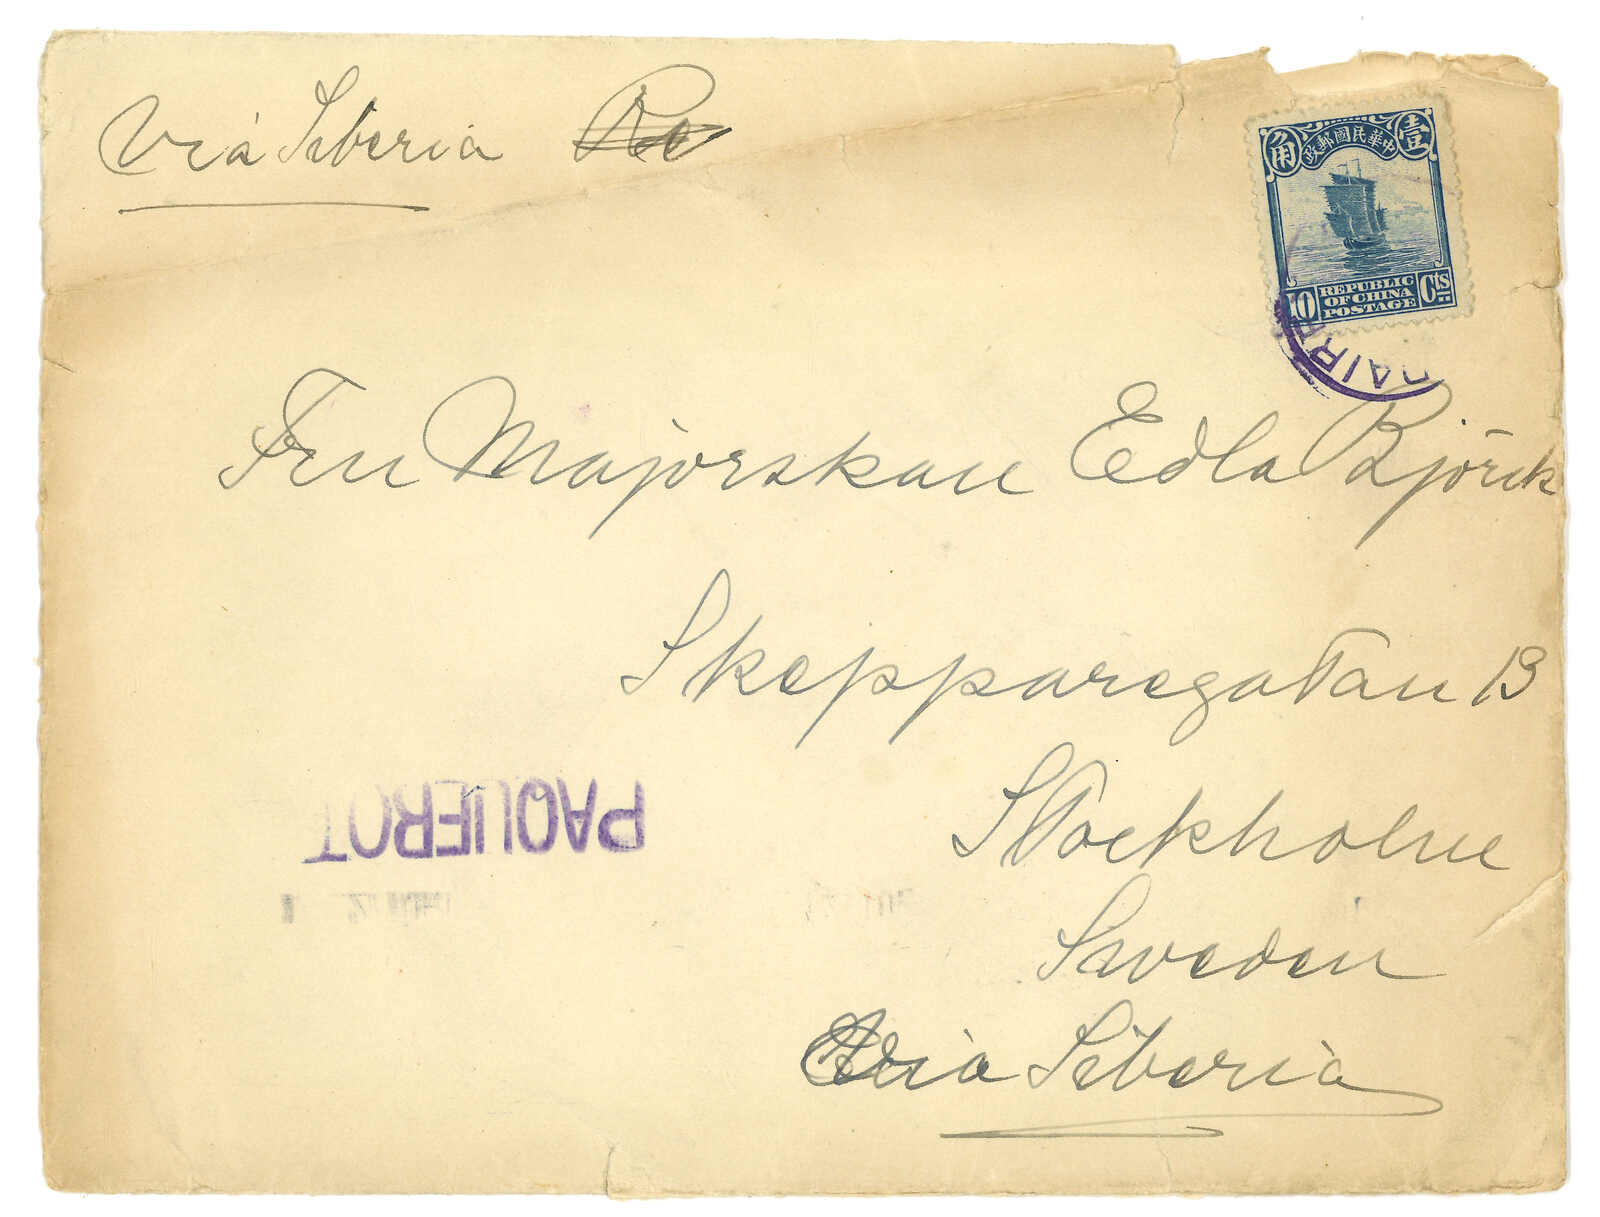 Via Siberia
壹 中華民國郵政 角
10 REPUBLIC OF CHINA POSTAGE Cts
Fru Majorskan Edla Björck
Skepparegatan 13
Stockholm
Sweden
Via Siberia
PAQUEBOT